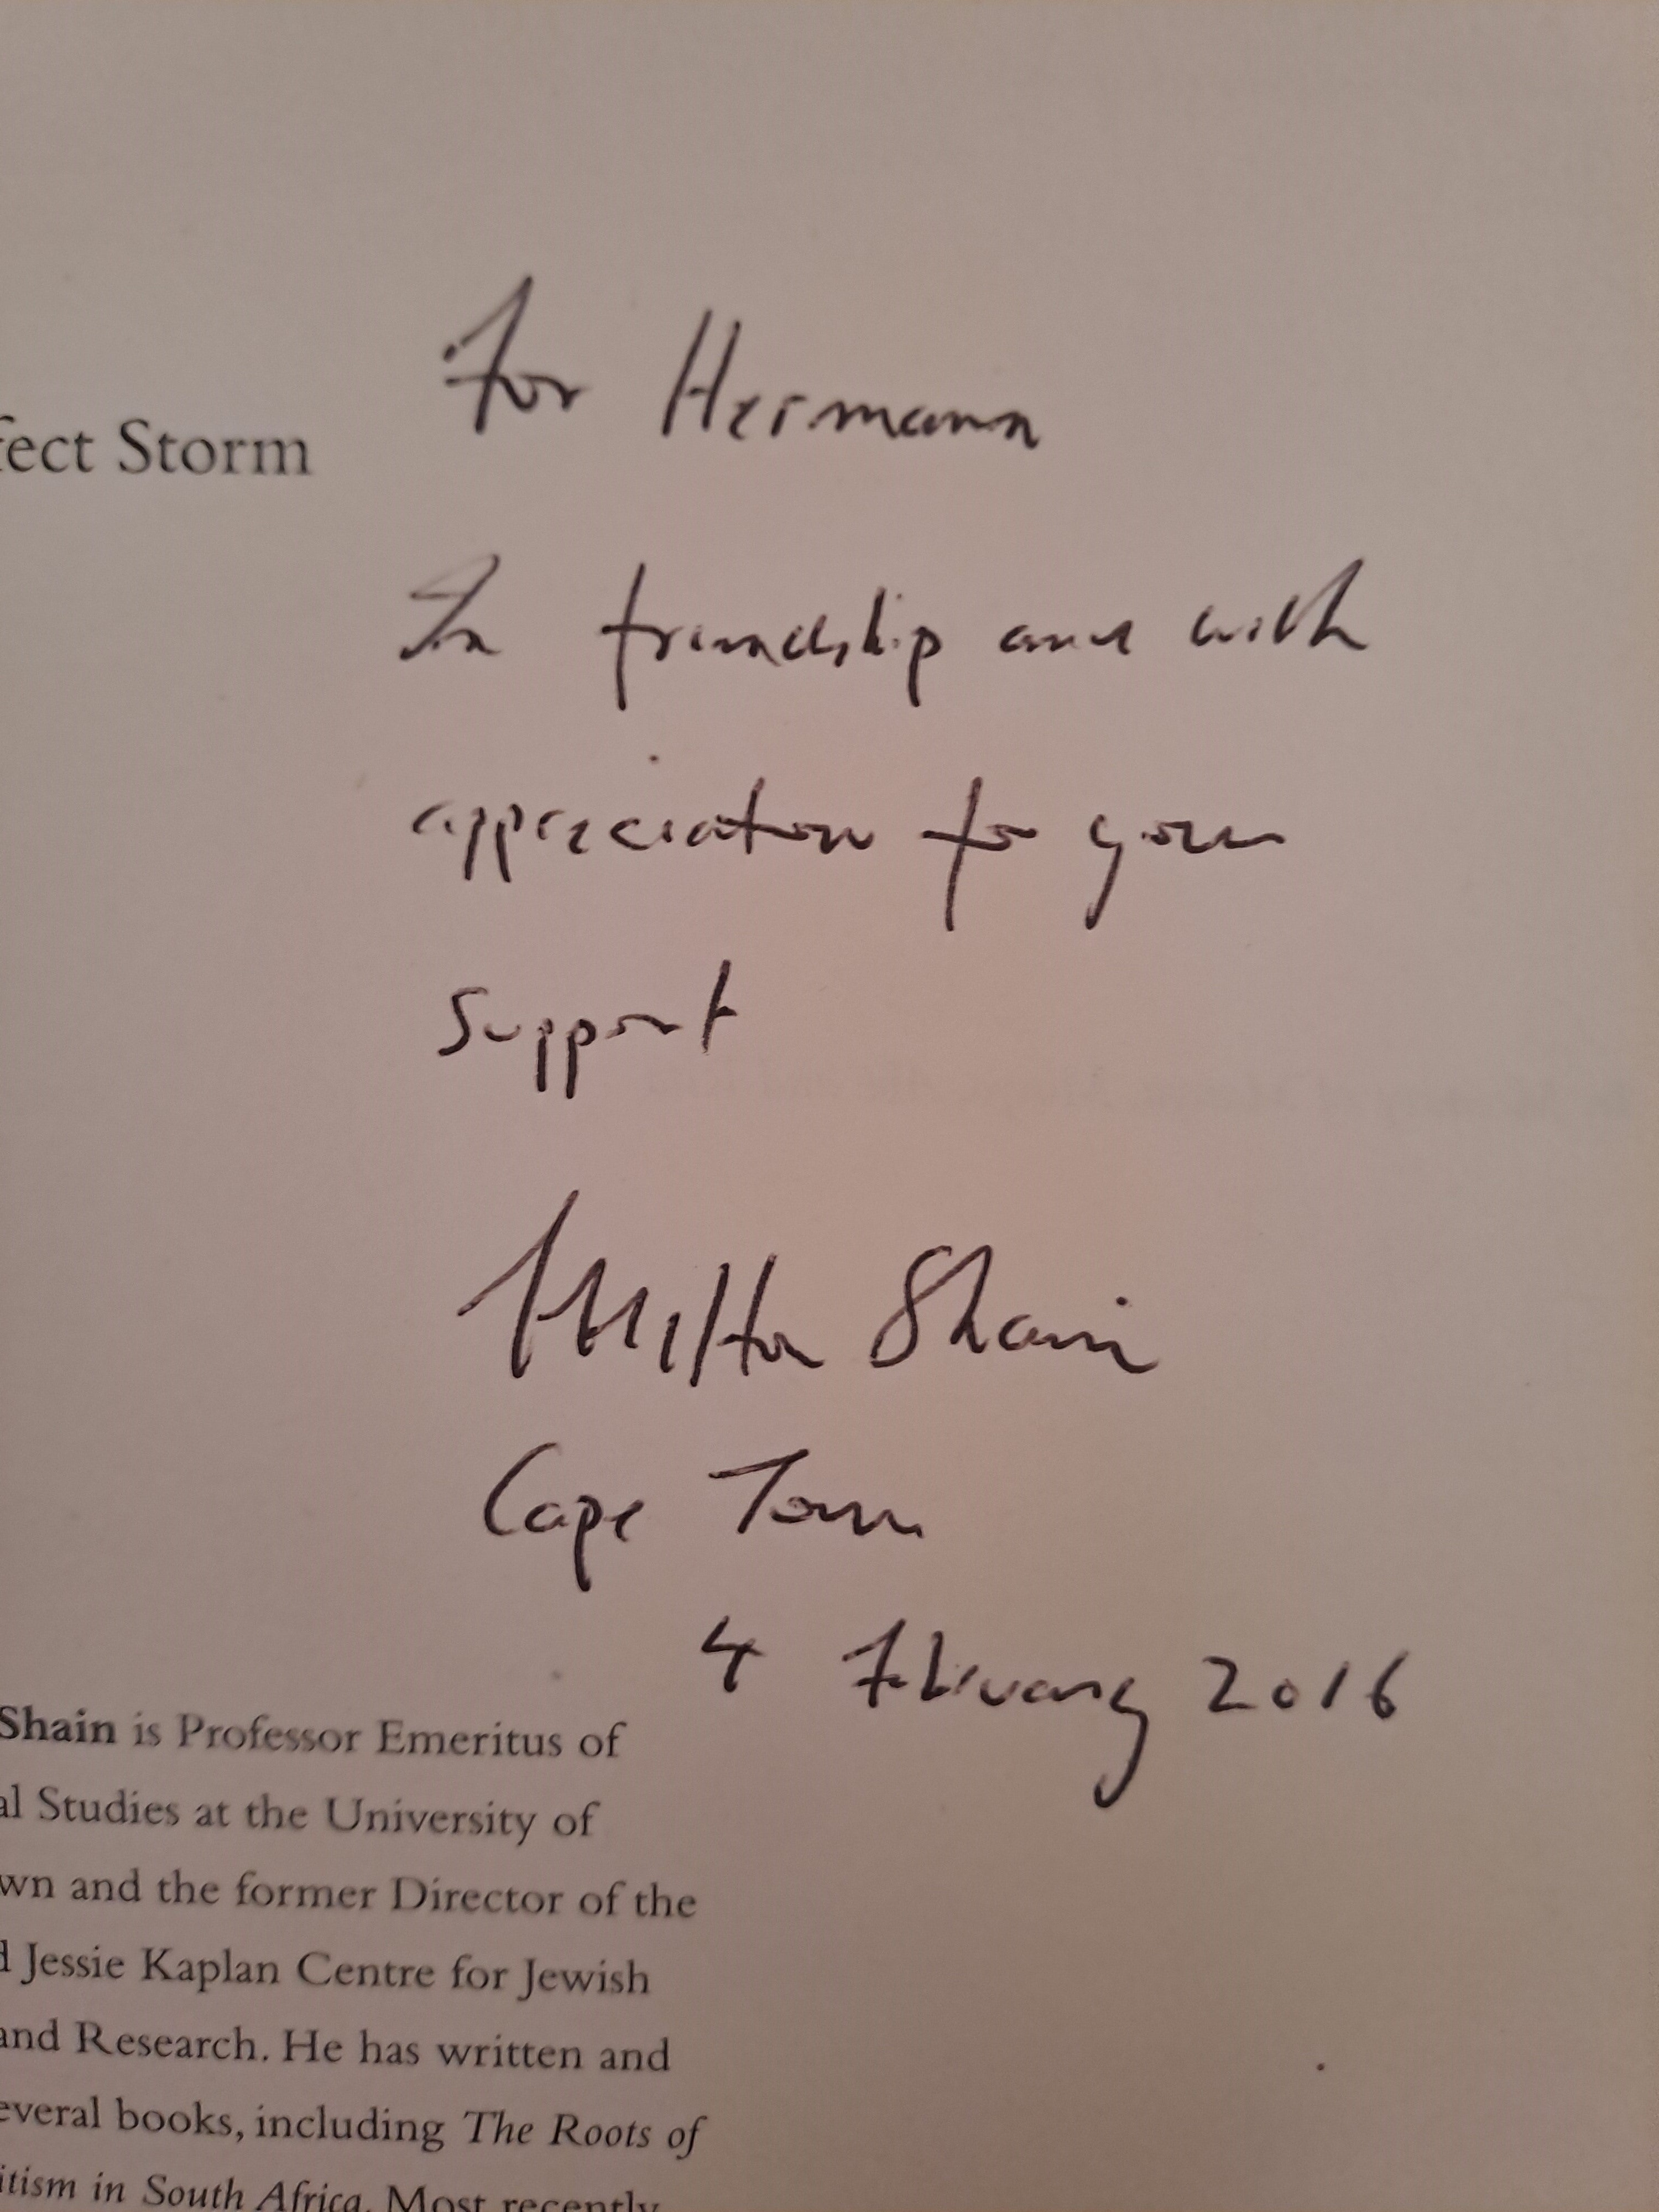 For Hermann
fect Storm
In friendship and with
appreciation for your
support
Milton Shain
Cape Town
4 February 2016
Shain is Professor Emeritus of
al Studies at the University of
wn and the former Director of the
d Jessie Kaplan Centre for Jewish
and Research. He has written and
everal books, including The Roots of
itism in South Africa. Most recently